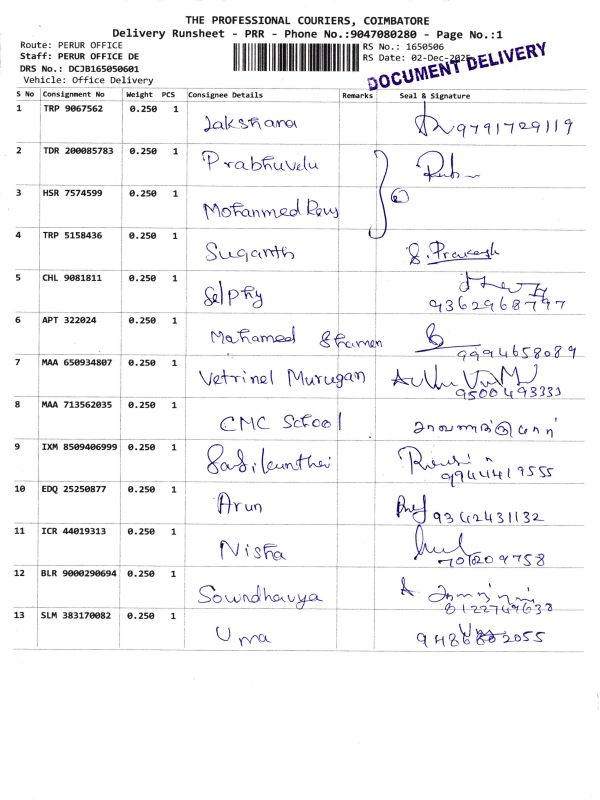 THE PROFESSIONAL COURIERS, COIMBATORE
Delivery Runsheet - PRR - Phone No.:9047080280 - Page No.:1
Route: PERUR OFFICE
RS No.: 1650506
Staff: PERUR OFFICE DE
RS Date: 02-Dec-2025
DRS No.: DCJB165050601
Vehicle: Office Delivery
DOCUMENT DELIVERY
S No Consignment No Weight PCS Consignee Details Remarks Seal & Signature
1 TRP 9067562 0.250 1 Lakshana 9791729119
2 TDR 200085783 0.250 1 Prabhuvelu
3 HSR 7574599 0.250 1 Mohanmed
4 TRP 5158436 0.250 1 Suganth S. Prakash
5 CHL 9081811 0.250 1 Selphy
9362968797
6 APT 322024 0.250 1 Mahamed
9994658089
7 MAA 650934807 0.250 1 Vetrinel Murugan
9500493333
8 MAA 713562035 0.250 1 CMC School
9 IXM 8509406999 0.250 1
9944419555
10 EDQ 25250877 0.250 1 Arun 9362431132
11 ICR 44019313 0.250 1 Nisha
12 BLR 9000290694 0.250 1 Sowndhavya
8122749638
13 SLM 383170082 0.250 1 Uma